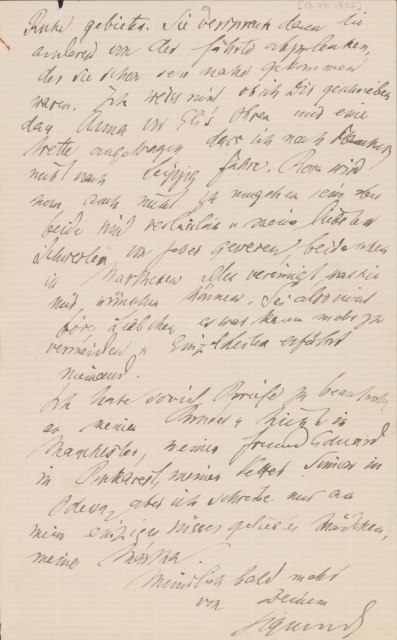 [13 VII 1882]
Ruhe gebieten. Sie versprach dann die
anderen von der Fährte abzulenken,
der sie schon sehr nahe gekommen
waren. Ich weiss nicht ob ich Dir geschrieben
daß Anna vor Elis Ohren mir eine
Wette angetragen dass ich nach Hamburg
nicht nach Leipzig fahre. Rosa wird
nun auch nicht zu umgehen sein, aber
beide sind verläßlich u meine liebsten
Schwestern von jeher gewesen, beide
in
und wünschen können. Sei also nicht
böse Liebchen, es war kaum mehr zu
vermeiden u Einzelheiten erfährt
niemand.
Ich habe soviel Briefe zu beantworten
an meinen Bruder u
Manchester, meinen Freund Eduard
in Bukarest, meinen Vetter Simon in
Odessa, aber ich schreibe nur an
mein einziges süsses geliebtes Mädchen,
meine Martha.
Mündlich bald mehr
von Deinem
Sigmund